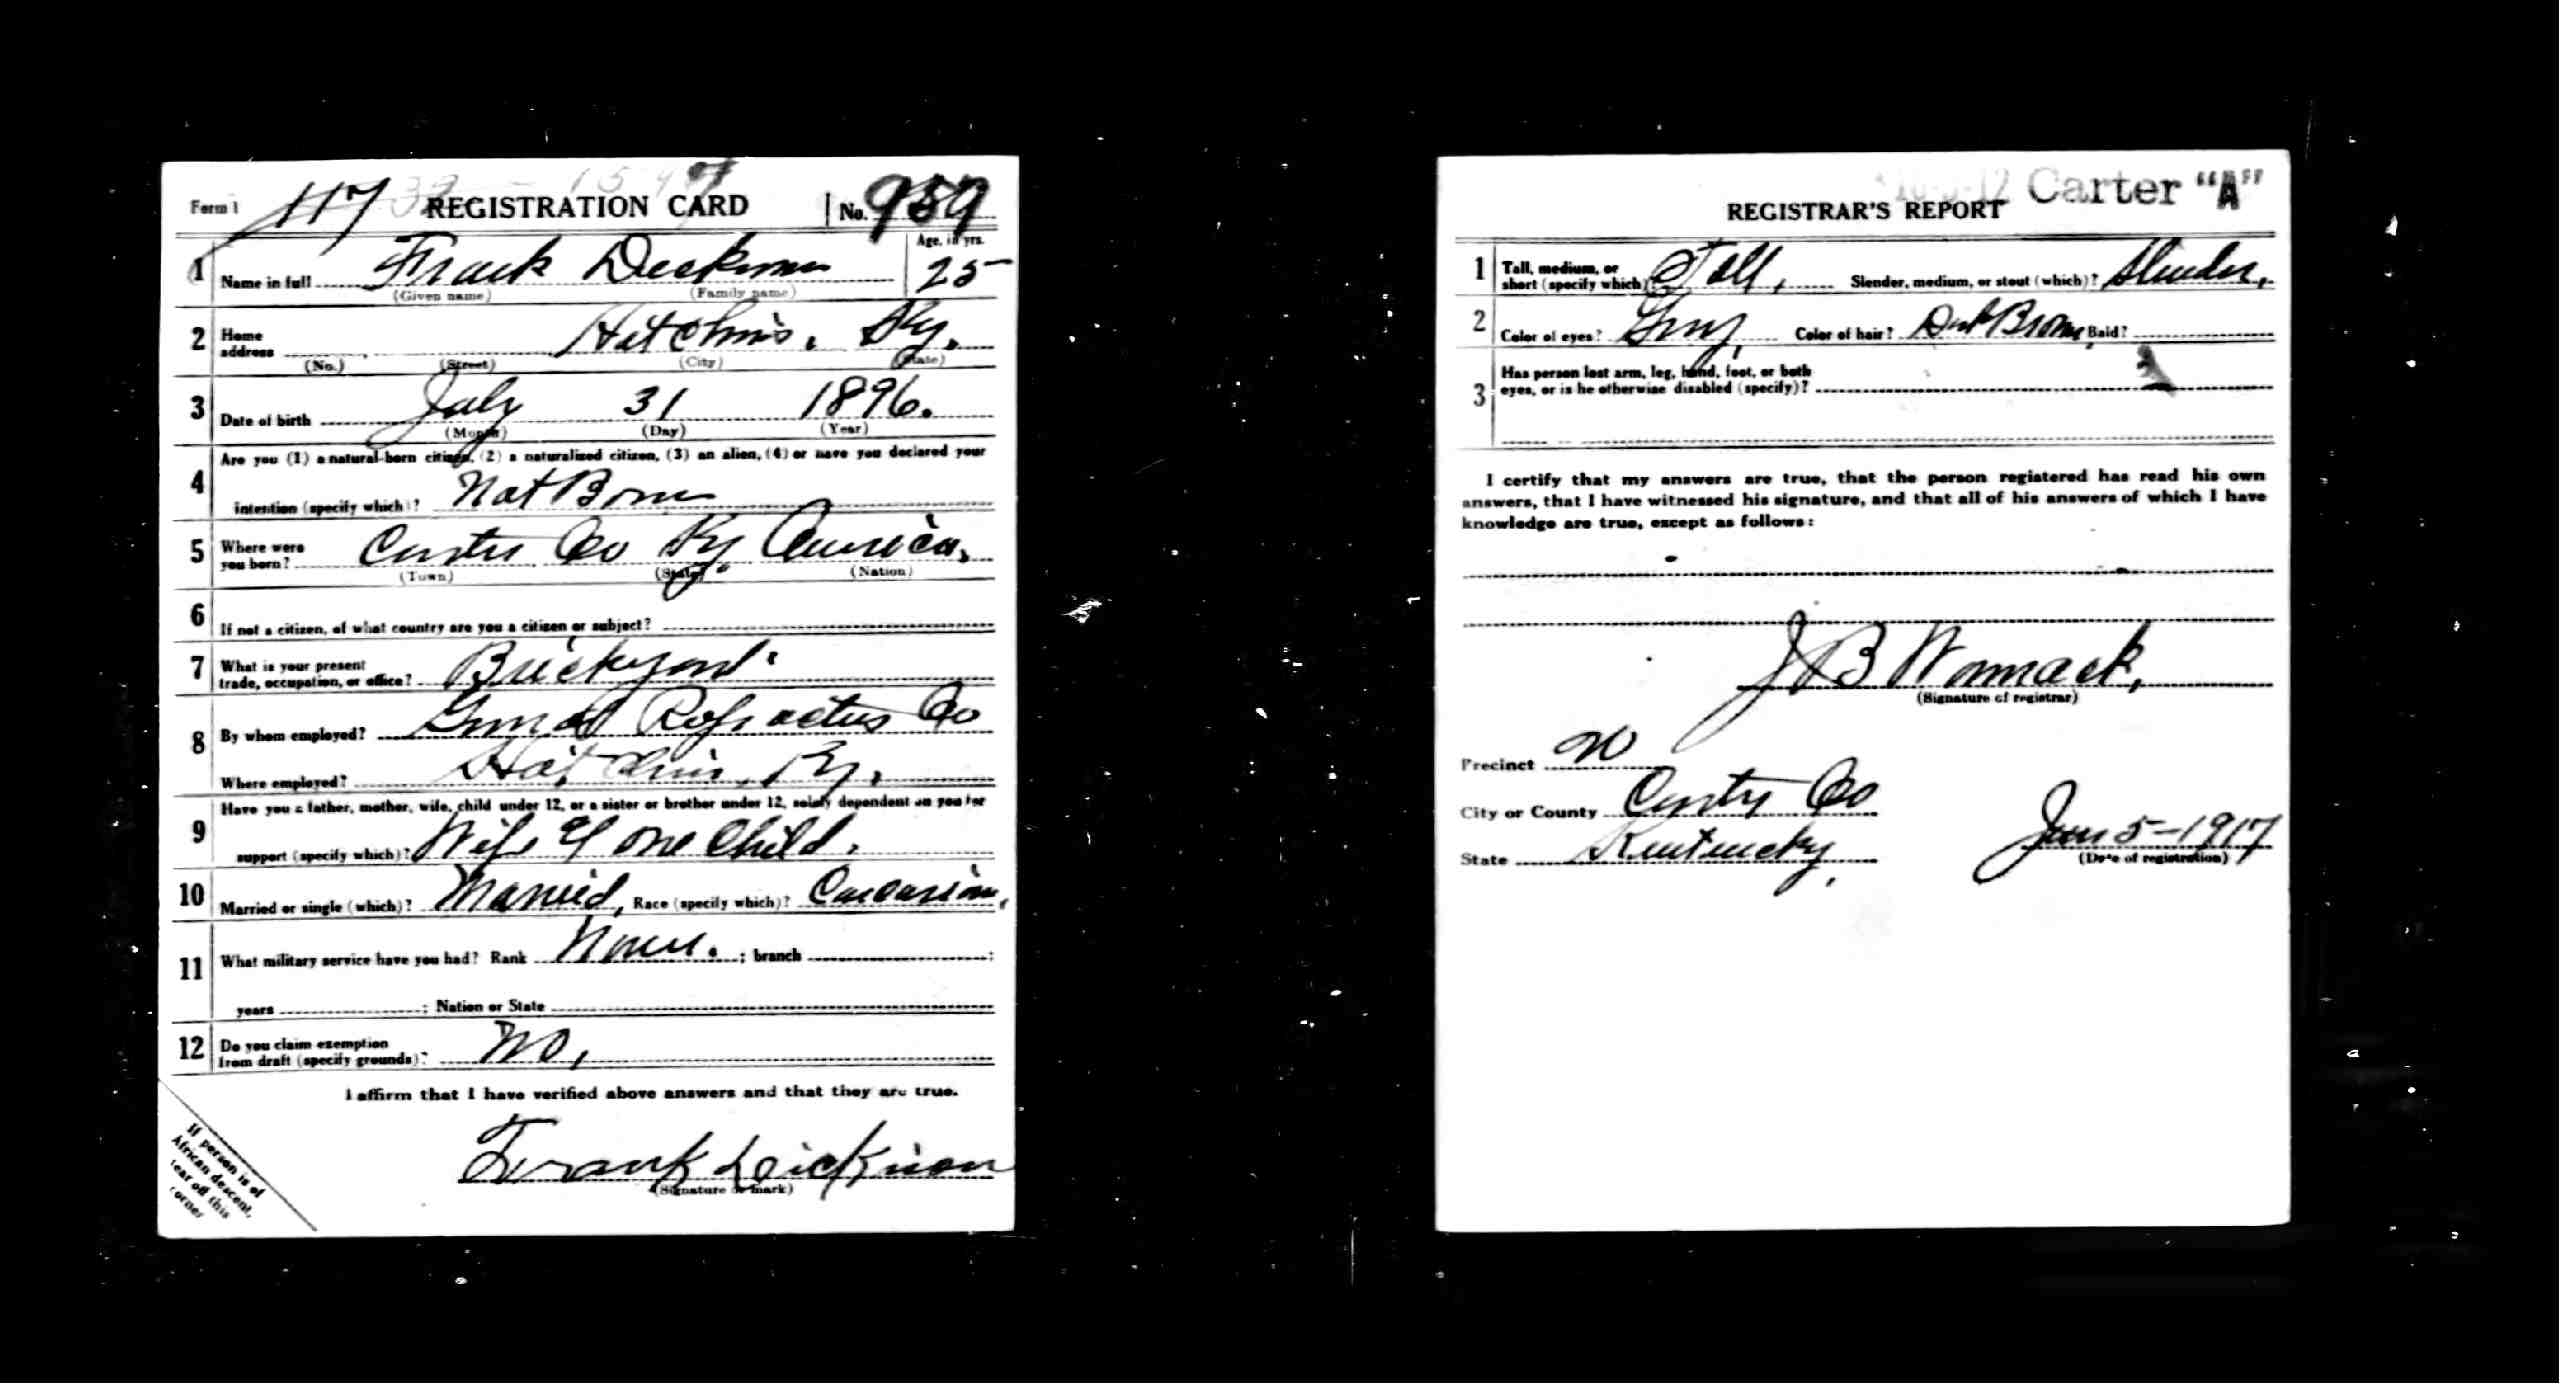 Form 1 117 REGISTRATION CARD No. 959
1 Name in full Frank Deckman Age, in yrs. 25
(Given name) (Family name)
2 Home address Hitchins, Ky.
(No.) (Street) (City) (State)
3 Date of birth July 31 1896.
(Month) (Day) (Year)
4 Are you (1) a natural-born citizen, (2) a naturalized citizen, (3) an alien, (4) or have you declared your
intention (specify which)? Nat Born
5 Where were you born? Carter Co Ky. America,
(Town) (State) (Nation)
6 If not a citizen, of what country are you a citizen or subject?
7 What is your present
trade, occupation, or office? Brickyard
8 By whom employed? Refractus Co
Where employed? Ky.
9 Have you a father, mother, wife, child under 12, or a sister or brother under 12, solely dependent on you for
support (specify which)? Wife & one Child.
10 Married or single (which)? Married, Race (specify which)? Caucasian,
11 What military service have you had? Rank None. ; branch ;
years ; Nation or State
12 Do you claim exemption
from draft (specify grounds)? No,
I affirm that I have verified above answers and that they are true.
Frank Dickison
(Signature or mark)
If person is of
African descent,
tear off this
corner
Carter "A"
REGISTRAR'S REPORT
1 Tall, medium, or
short (specify which)? Tall, Slender, medium, or stout (which)? Slender,
2 Color of eyes? Gray, Color of hair? Dark Brown, Bald?
3 Has person lost arm, leg, hand, foot, or both
eyes, or is he otherwise disabled (specify)?
I certify that my answers are true, that the person registered has read his own
answers, that I have witnessed his signature, and that all of his answers of which I have
knowledge are true, except as follows:
J B Womack,
(Signature of registrar)
Precinct
City or County Carter Co
State Kentucky, June 5-1917
(Date of registration)